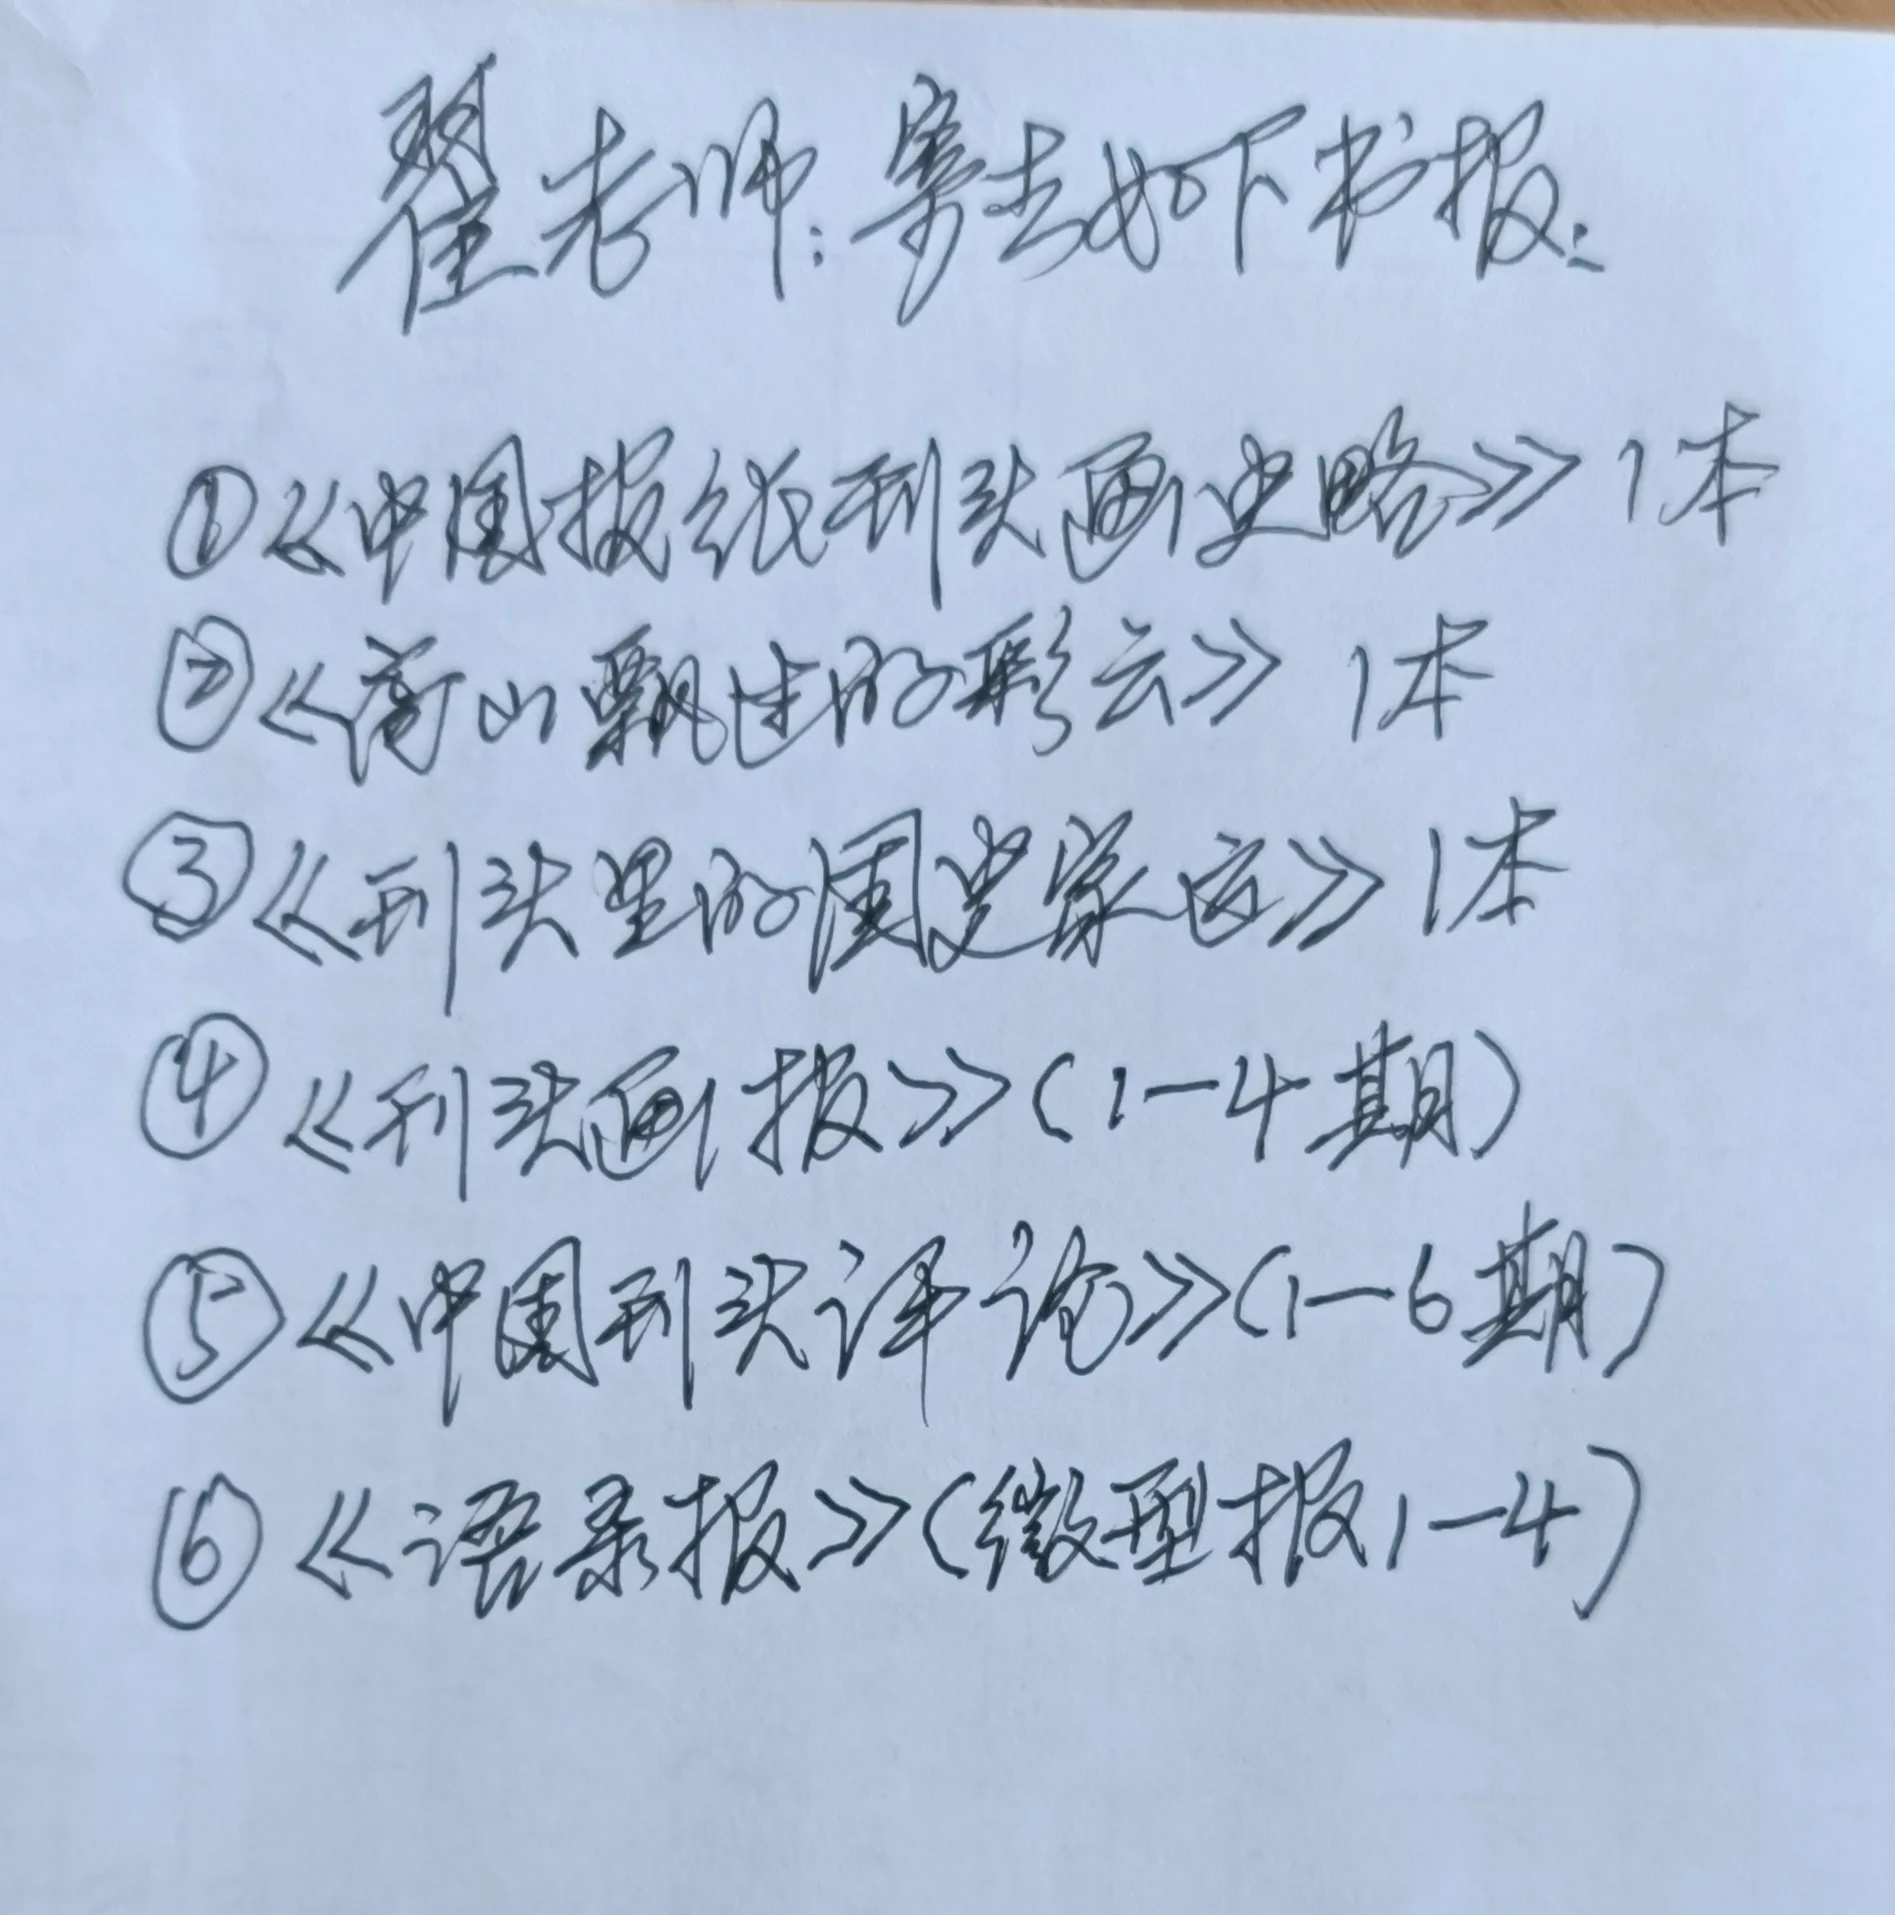 翟老师：寄去如下书报：
①《中国报纸刊头画史略》1本
②《嵩山飘过的彩云》1本
③《刊头里的国史家言》1本
④《刊头画报》（1—4期）
⑤《中国刊头评论》（1—6期）
⑥《语录报》（微型报1—4）